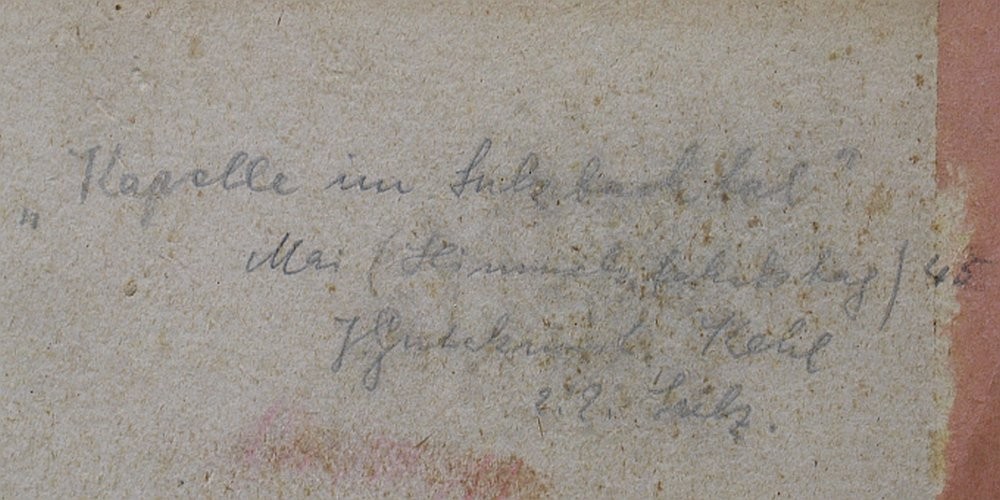 „Kapelle im Sulzbachtal"
Mai (Himmelfahrtstag) 45
Kehl
z. Z. Sulz.